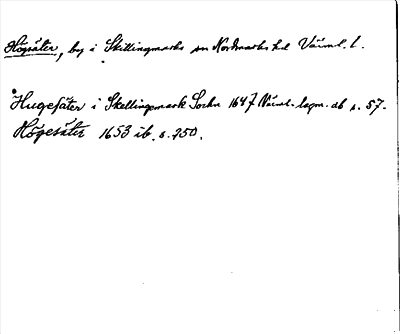 Högsäter, by i Skillingmarks sn Nordmarks hd Värml. l.
Hugesäter i Skellingemark Sockn 1647 Värml. lagm. db s. 57.
Högesäter 1653 ib. s. 250.